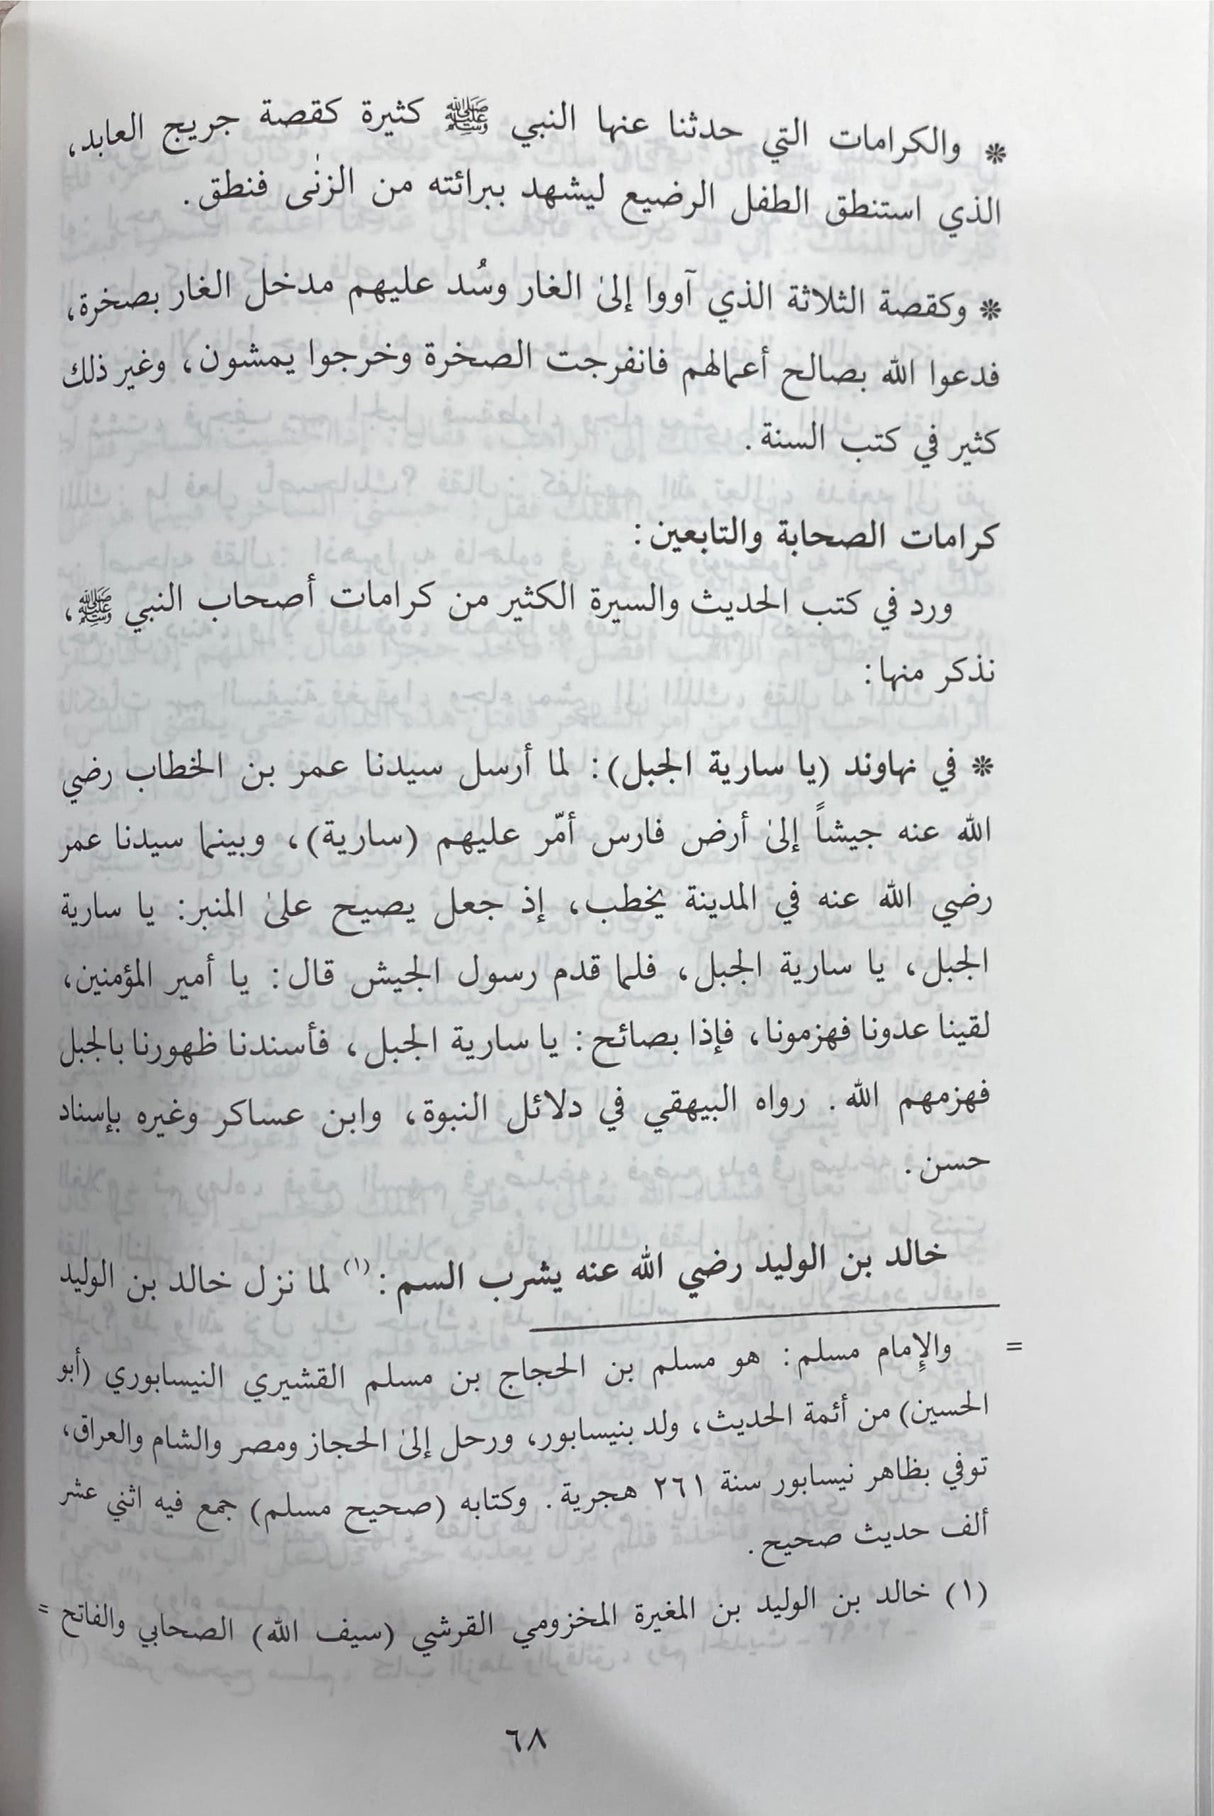 ❊ والكرامات التي حدثنا عنها النبي ﷺ كثيرة كقصة جريج العابد،
الذي استنطق الطفل الرضيع ليشهد ببرائته من الزنى فنطق.
❊ وكقصة الثلاثة الذي آووا إلىٰ الغار وسُد عليهم مدخل الغار بصخرة،
فدعوا الله بصالح أعمالهم فانفرجت الصخرة وخرجوا يمشون، وغير ذلك
كثير في كتب السنة.
كرامات الصحابة والتابعين:
ورد في كتب الحديث والسيرة الكثير من كرامات أصحاب النبي ﷺ،
نذكر منها:
❊ في نهاوند (يا سارية الجبل): لما أرسل سيدنا عمر بن الخطاب رضي
الله عنه جيشاً إلىٰ أرض فارس أمّر عليهم (سارية)، وبينما سيدنا عمر
رضي الله عنه في المدينة يخطب، إذ جعل يصيح علىٰ المنبر: يا سارية
الجبل، يا سارية الجبل، فلما قدم رسول الجيش قال: يا أمير المؤمنين،
لقينا عدونا فهزمونا، فإذا بصائح: يا سارية الجبل، فأسندنا ظهورنا بالجبل
فهزمهم الله. رواه البيهقي في دلائل النبوة، وابن عساكر وغيره بإسناد
حسن.
خالد بن الوليد رضي الله عنه يشرب السم:(١) لما نزل خالد بن الوليد
= والإمام مسلم: هو مسلم بن الحجاج بن مسلم القشيري النيسابوري (أبو
الحسين) من أئمة الحديث، ولد بنيسابور، ورحل إلىٰ الحجاز ومصر والشام والعراق،
توفي بظاهر نيسابور سنة ٢٦١ هجرية. وكتابه (صحيح مسلم) جمع فيه اثني عشر
ألف حديث صحيح.
(١) خالد بن الوليد بن المغيرة المخزومي القرشي (سيف الله) الصحابي والفاتح =
٦٨